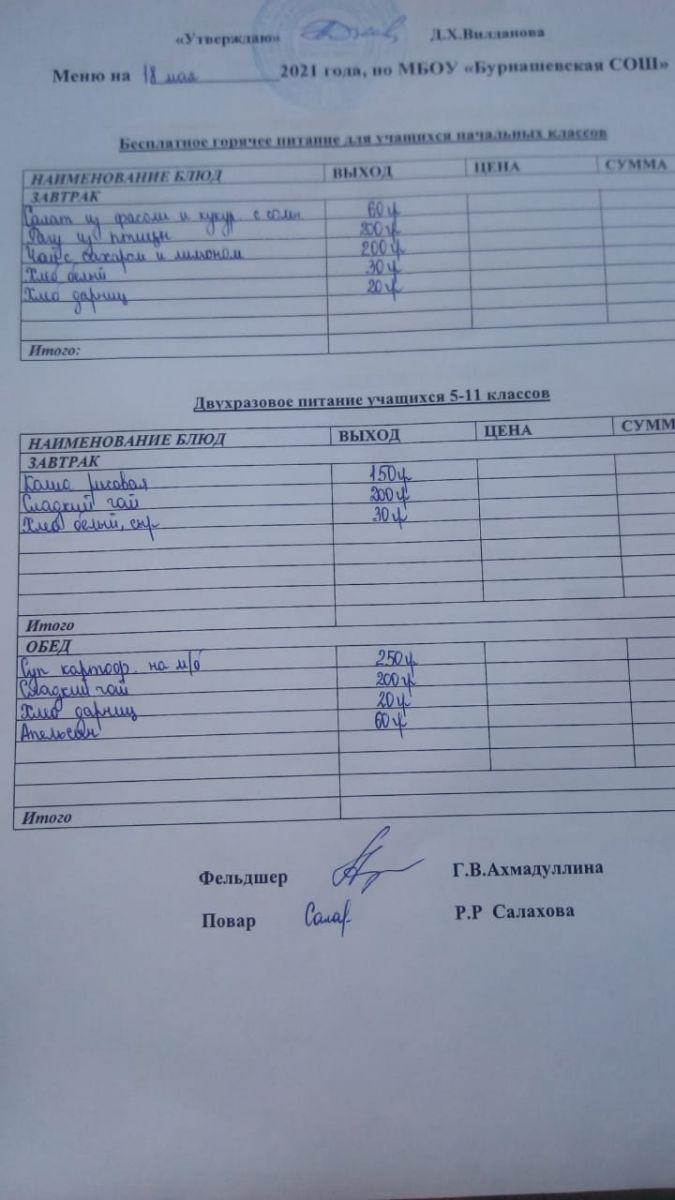 «Утверждаю» Д.Х.Вилданова
Меню на 18 мая 2021 года, по МБОУ «Бурнашевская СОШ»
Бесплатное горячее питание для учащихся начальных классов
НАИМЕНОВАНИЕ БЛЮД ВЫХОД ЦЕНА СУММА
ЗАВТРАК
Салат из фасоли и кукур. с солен 60 гр
Рагу из птицы 200 гр
Чай с сахаром и лимоном 200 гр
Хлеб белый 30 гр
Хлеб дарниц 20 гр
Итого:
Двухразовое питание учащихся 5-11 классов
НАИМЕНОВАНИЕ БЛЮД ВЫХОД ЦЕНА СУММ
ЗАВТРАК
Каша рисовая 150 гр
Сладкий чай 200 гр
Хлеб белый, сыр 30 гр
Итого
ОБЕД
Суп картоф. на м/б 250 гр
Сладкий чай 200 гр
Хлеб дарниц 20 гр
Апельсин 60 гр
Итого
Фельдшер Г.В.Ахмадуллина
Повар Салах Р.Р Салахова